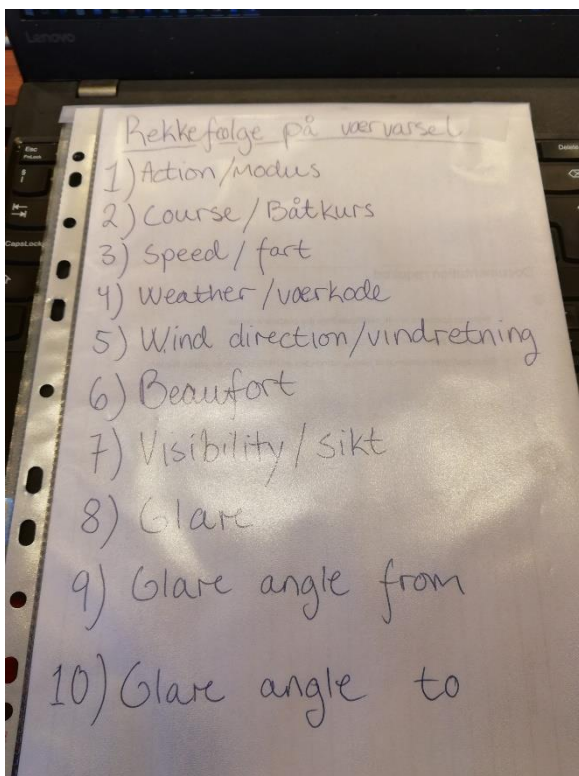 Lenovo
Esc
FnLock
Delete
CapsLock
Rekkefølge på værvarsel
1) Action/Modus
2) Course/Båtkurs
3) Speed/fart
4) Weather/værkode
5) Wind direction/vindretning
6) Beaufort
7) Visibility/sikt
8) Glare
9) Glare angle from
10) Glare angle to